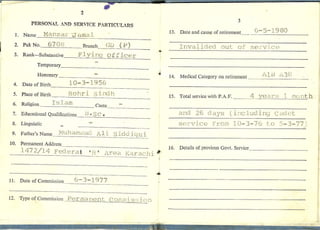 2
PERSONAL AND SERVICE PARTICULARS
1. Name Manzar Jamal
2. Pak No. 6706 Branch GD (P)
3. Rank—Substantive Flying Officer
Temporary
Honorary "
4. Date of Birth 10-3-1956
5. Place of Birth Rohri Sindh
6. Religion Islam Caste "
7. Educational Qualifications B.SC.
8. Linguistic " "
9. Father's Name Muhammad Ali Siddiqui
10. Permanent Address
1472/14 Federal 'B' Area Karachi
11. Date of Commission 6-3-1977
12. Type of Commission Permanent Commission
3
13. Date and cause of retirement 6-5-1980
invalided out of service
14. Medical Category on retirement
15. Total service with P.A.F. 4 years 1 month
and 26 days (including Cadet
service from 10-3-76 to 5-3-77)
16. Details of previous Govt. Service